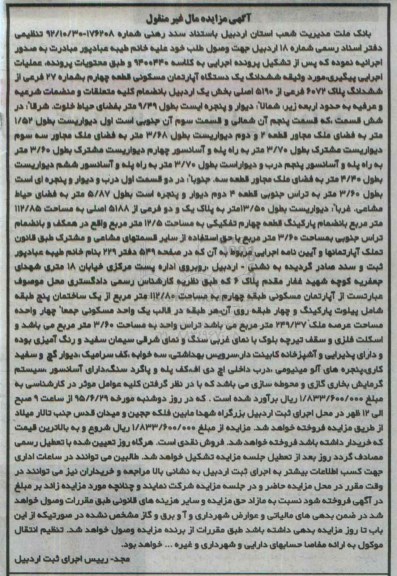 آگهی مزایده مال غیر منقول
بانک ملت مدیریت شعب استان اردبیل باستناد سند رهنی شماره ۱۷۶۲۰۸-۹۲/۱۰/۳۰ تنظیمی
دفتر اسناد رسمی شماره ۱۸ اردبیل جهت وصول طلب خود علیه خانم طیبه عبادپور مبادرت به صدور
اجرائیه نموده که پس از تشکیل پرونده اجرایی به کلاسه ۹۴۰۰۴۴۰ و طبق محتویات پرونده، عملیات
اجرایی پیگیری،مورد وثیقه ششدانگ یک دستگاه آپارتمان مسکونی قطعه چهارم بشماره ۲۷ فرعی از
ششدانگ پلاک ۶۰۷۲ فرعی از ۵۱۹۰ اصلی بخش یک اردبیل بانضمام کلیه متعلقات و منضمات شرعیه
و عرفیه به حدود اربعه زیر: شمالاً: دیوار و پنجره ایست بطول ۹/۴۹ متر بفضای حیاط خلوت. شرقاً: در
شش قسمت ،که قسمت پنجم آن شمالی و قسمت سوم آن جنوبی است اول دیواریست بطول ۱/۵۲
متر به فضای ملک مجاور قطعه ۴ و دوم دیواریست بطول ۳/۶۸ متر به فضای ملک مجاور سه سوم
دیواریست مشترک بطول ۳/۷۰ متر به راه پله و آسانسور چهارم دیواریست مشترک بطول ۳/۶۰ متر
به راه پله و آسانسور پنجم درب و دیواراست بطول ۳/۷۰ متر به راه پله و آسانسور ششم دیواریست
بطول ۴/۴۰ متر به فضای ملک مجاور قطعه سه. جنوباً: در دو قسمت اول درب و دیوار و پنجره ای است
بطول ۳/۶۰ متر به تراس جنوبی قطعه ۴ دوم دیوار و پنجره است بطول ۵/۸۷ متر به فضای حیاط
مشاعی. غرباً: دیواریست بطول ۱۳/۵۰متر به پلاک یک و دو فرعی از ۵۱۸۸ اصلی به مساحت ۱۱۲/۸۵
متر مربع بانضمام پارکینگ قطعه چهارم تفکیکی به مساحت ۱۲/۵ متر مربع واقع در همکف و بانضمام
تراس جنوبی بمساحت ۳/۶۰ متر مربع با حق استفاده از سایر قسمتهای مشاعی و مشترک طبق قانون
تملک آپارتمانها و آیین نامه اجرایی مربوط به آن که در صفحه ۵۴۹ دفتر ۲۲۹ بنام خانم طیبه عبادپور
ثبت و سند صادر گردیده به نشنی: - اردبیل ،روبروی اداره پست مرکزی خیابان ۱۸ متری شهدای
جعفریه کوچه شهید غفار مقدم پلاک ۶ که طبق نظریه کارشناس رسمی دادگستری محل موصوف
عبارتست از آپارتمان مسکونی طبقه چهارم به مساحت ۱۱۲/۸۰ متر مربع از یک ساختمان پنج طبقه
شامل پیلوت پارکینگ و چهار طبقه روی آن،هر طبقه در قالب یک واحد مسکونی جمعاً چهار واحده
مساحت عرصه ملک ۲۴۹/۳۷ متر مربع می باشد تراس واحد به مساحت ۳/۶۰ متر مربع می باشد و
اسکلت فلزی و سقف تیرچه بلوک با نمای غربی سنگ و نمای شرقی سیمان سفید و رنگ آمیزی بوده
و دارای پذیرایی و آشپزخانه کابینت دار،سرویس بهداشتی، سه خوابه ،کف سرامیک ،دیوار گچ و سفید
کاری،پنجره های آلو مینیومی ،درب داخلی اچ دی اف،کف پله و پاگرد سنگ،دارای آسانسور ،سیستم
گرمایش بخاری گازی و محوطه سازی می باشد که با در نظر گرفتن کلیه عوامل موثر در کارشناسی به
مبلغ ۱/۸۳۳/۶۰۰/۰۰۰ ریال برآورد شده است . که در روز دوشنبه مورخه ۹۵/۶/۲۹ از ساعت ۹ صبح
الی ۱۲ ظهر در محل اجرای ثبت اردبیل بزرگراه شهدا مابین فلکه ججین و میدان قدس جنب تالار میلاد
از طریق مزایده فروخته خواهد شد. مزایده از مبلغ ۱/۸۳۳/۶۰۰/۰۰۰ ریال شروع و به بالاترین قیمت
که خریدار داشته باشد فروخته خواهد شد. فروش نقدی است. هرگاه روز تعیین شده با تعطیل رسمی
مصادف گردد روز بعد از تعطیل جلسه مزایده تشکیل خواهد شد. طالبین می توانند در ساعات اداری
جهت کسب اطلاعات بیشتر به اجرای ثبت اردبیل به نشانی بالا مراجعه و خریداران نیز می توانند در
وقت مقرر در محل مزایده حاضر و در جلسه مزایده شرکت نمایند و چنانچه مورد مزایده زائد بر مبلغ
در آگهی فروخته شود نسبت به مازاد حق مزایده و سایر هزینه های قانونی طبق مقررات وصول خواهد
شد در ضمن بدهی های مالیاتی و عوارض شهرداری و آ و برق و گاز مشخص نشده در صورتیکه از این
باب تا روز مزایده بدهی داشته باشد طبق مقررات از برنده مزایده وصول خواهد شد. تنظیم انتقال
موکول به ارائه مفاصا حسابهای دارایی و شهرداری و غیره ... خواهد بود.
مجد- رییس اجرای ثبت اردبیل